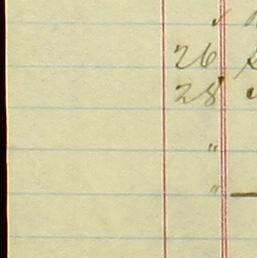 26
28
"
" —